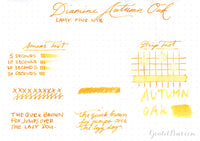 Diamine Autumn Oak
LAMY FINE NIB
Smear Test
Drip Test
5 SECONDS
10 SECONDS
20 SECONDS
30 SECONDS
XXXXXXXXXX
THE QUICK BROWN
FOX JUMPS OVER
THE LAZY DOG.
the quick brown
fox jumps over
the lazy dog.
AUTUMN
OAK